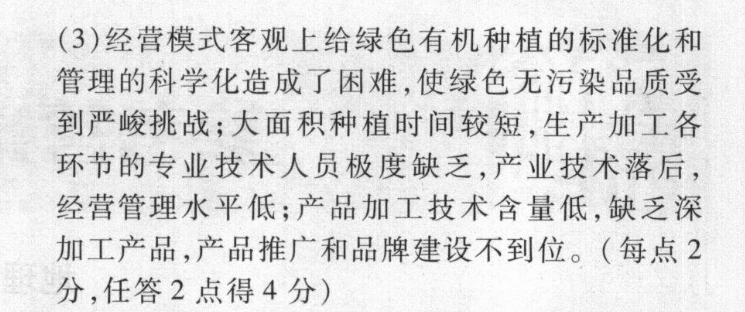 (3)经营模式客观上给绿色有机种植的标准化和
管理的科学化造成了困难,使绿色无污染品质受
到严峻挑战;大面积种植时间较短,生产加工各
环节的专业技术人员极度缺乏,产业技术落后,
经营管理水平低;产品加工技术含量低,缺乏深
加工产品,产品推广和品牌建设不到位。(每点2
分,任答2点得4分)